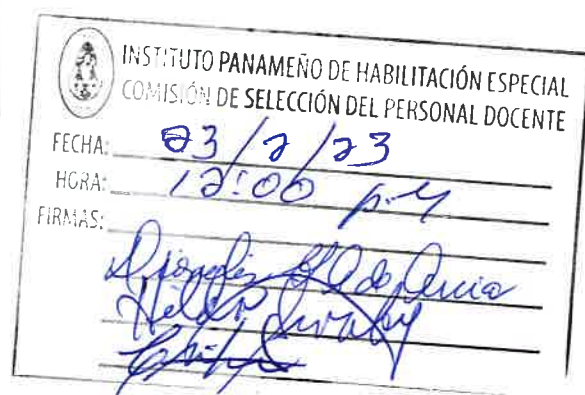 INSTITUTO PANAMEÑO DE HABILITACIÓN ESPECIAL
COMISIÓN DE SELECCIÓN DEL PERSONAL DOCENTE
FECHA: 23/2/23
HORA: 12:00 p.m
FIRMAS: